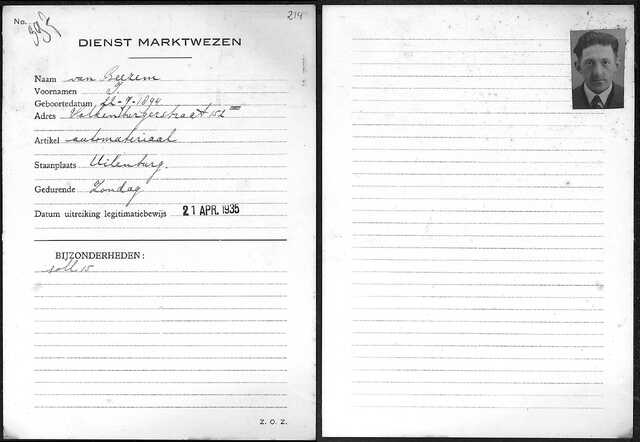 214
No. 
DIENST MARKTWEZEN
Naam van Beezem
Voornamen J.
Geboortedatum 22-9-1894
Adres Valkenburgerstraat 152 III
Artikel automateriaal
Staanplaats Uilenburg.
Gedurende Zondag
Datum uitreiking legitimatiebewijs 21 APR. 1935
BIJZONDERHEDEN:
soll 15
Z. O. Z.